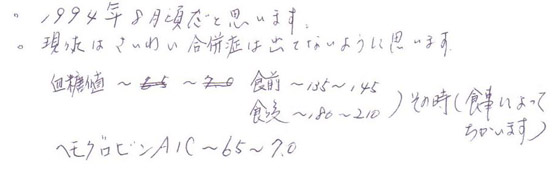 。1994年8月頃だと思います.
。現在はさいわい合併症は出てないように思います.
血糖値 ~6.5 ~7.0 食前 ~135~145
食後 ~180~210 ) その時(食事によって
ちがいます)
ヘモグロビンA1C~65~7.0